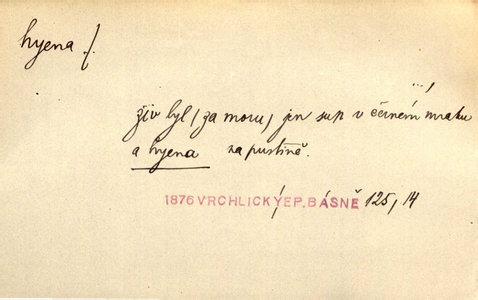 hyena f.
..., živ byl (za moru) jen sup v černém mraku
a hyena na pustině.
1876 VRCHLICKÝ, EP. BÁSNĚ 125, 14